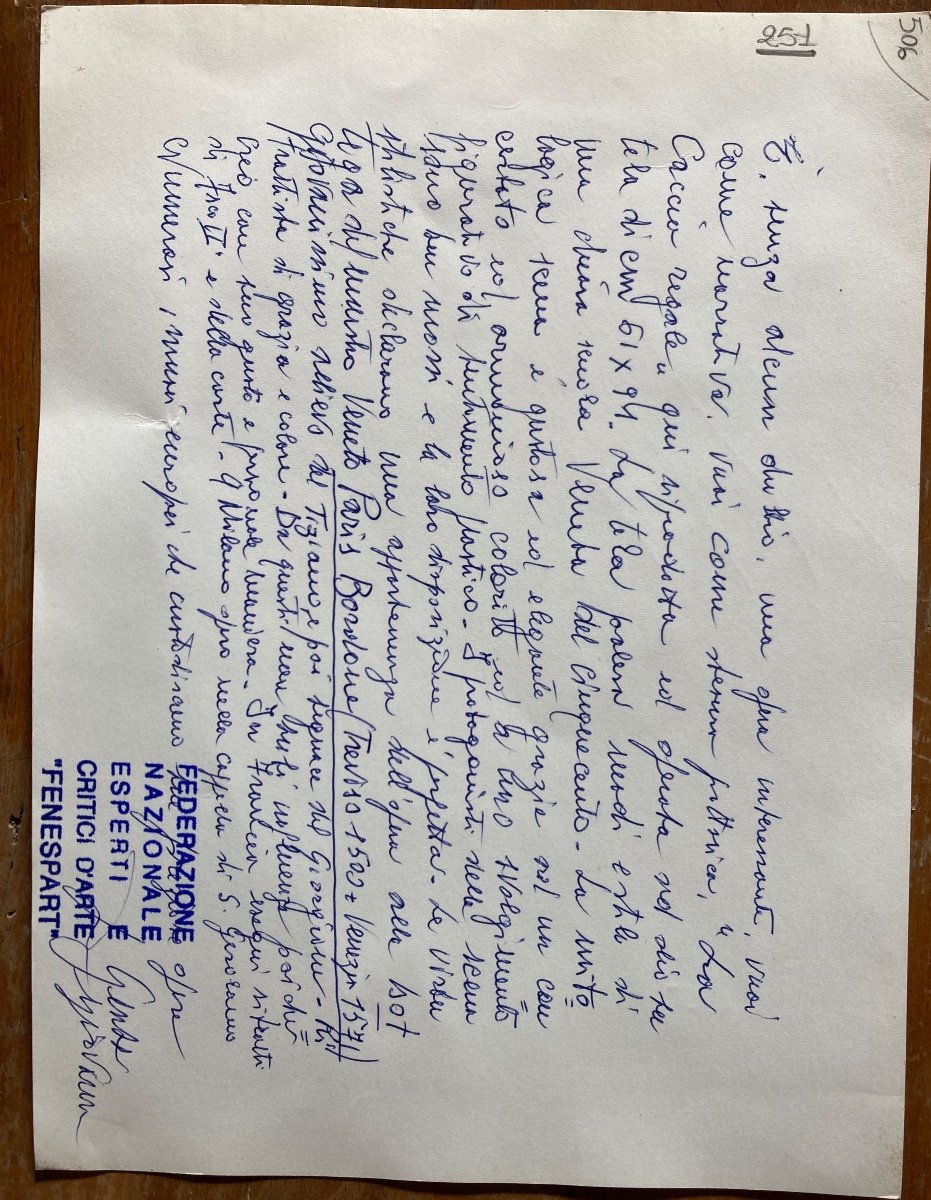 506
251
È, senza alcun dubbio, una opera interessante, vuoi
come narrativa, vuoi come stesura pittorica, "La
Caccia regale" qui riprodotta ed operata ad olio su
tela di cm 61 x 94. La tela palesa modi e stile di
una chiara scuola Veneta del Cinquecento. La mito=
logica scena è gustosa ed elegante grazie ad un con
certato ed armonioso colorito ed al suo svolgimento
figurativo di sentimento plastico. I protagonisti della scena
sono ben mossi e la loro disposizione è perfetta. Le virtù
stilistiche declarano una appartenenza dell'opera alla bot
tega del maestro Veneto Paris Bordone (Treviso 1500 + Venezia 1571)
Giovanissimo allievo del Tiziano, e poi seguace del Giorgione. Ri
trattista di grazia e colore. Da questi non subì influenza poichè
creò con suo gusto e personale maniera. In Francia eseguì ritratti
di Fra. II° e della corte. A Milano operò nella cappella di S. Gerolamo
Numerosi i musei europei che custodiscono sue opere
FEDERAZIONE
NAZIONALE
ESPERTI E
CRITICI D'ARTE
"FENESPART"